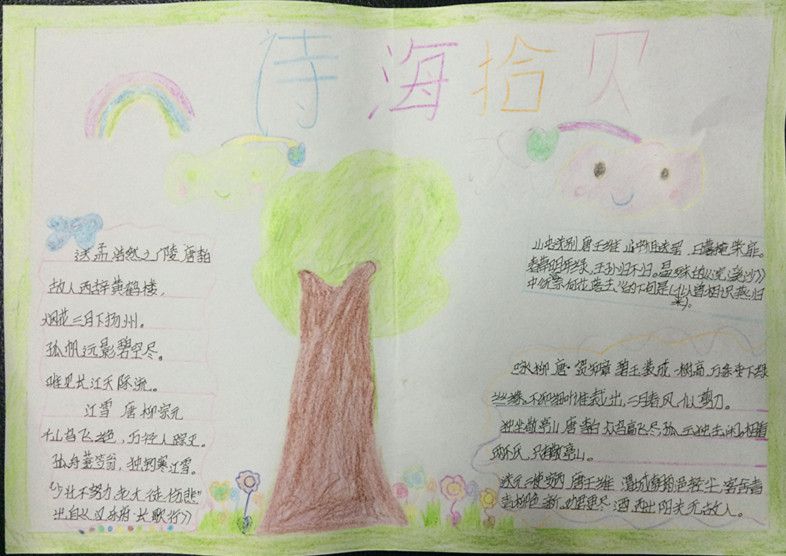 诗海拾贝
送孟浩然之广陵 唐 李白
故人西辞黄鹤楼，
烟花三月下扬州。
孤帆远影碧空尽，
唯见长江天际流。
江雪 唐 柳宗元
千山鸟飞绝，万径人踪灭。
孤舟蓑笠翁，独钓寒江雪。
"少壮不努力老大徒伤悲"
出自《汉乐府 长歌行》
山中送别 唐 王维 山中相送罢，日暮掩柴扉。
春草明年绿，王孙归不归。晏殊的《浣溪沙》
中无可奈何花落去 的下句是《似曾相识燕归
来》。
咏柳 唐·贺知章 碧玉妆成一树高，万条垂下绿
丝绦。不知细叶谁裁出，二月春风似剪刀。
独坐敬亭山 唐 李白 众鸟高飞尽，孤云独去闲。相看
两不厌，只有敬亭山。
送元二使安西 唐 王维 渭城朝雨浥轻尘 客舍青
青柳色新，劝君更尽 酒 西出阳关无故人。